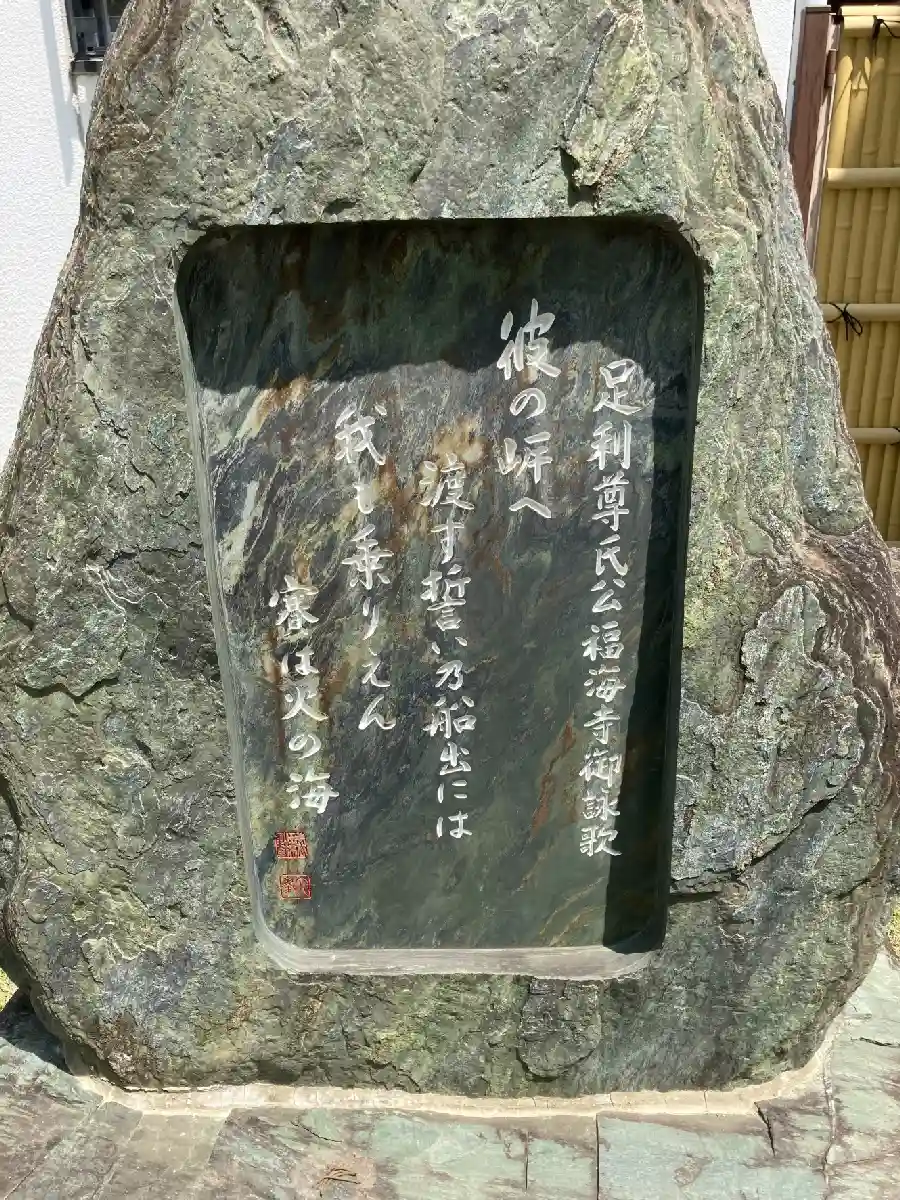 足利尊氏公福海寺御詠歌
彼の岸へ
渡す誓い乃船出には
我も乗りえん
は火の海